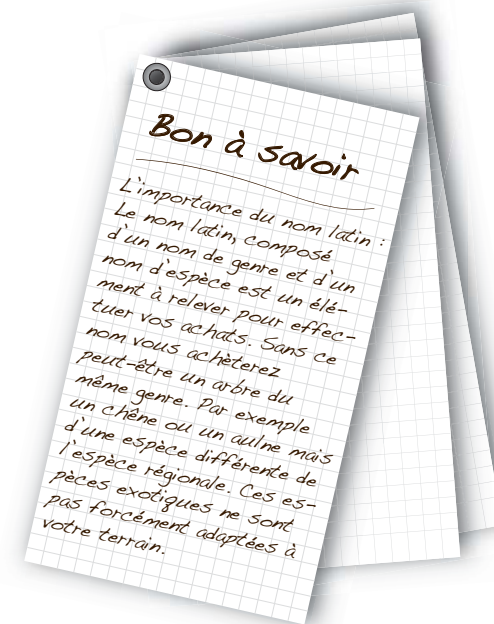 Bon à savoir
L'importance du nom latin :
Le nom latin, composé
d'un nom de genre et d'un
nom d'espèce est un élé-
ment à relever pour effec-
tuer vos achats. Sans ce
nom vous achèterez
peut-être un arbre du
même genre. Par exemple
un chêne ou un aulne mais
d'une espèce différente de
l'espèce régionale. Ces es-
pèces exotiques ne sont
pas forcément adaptées à
votre terrain.